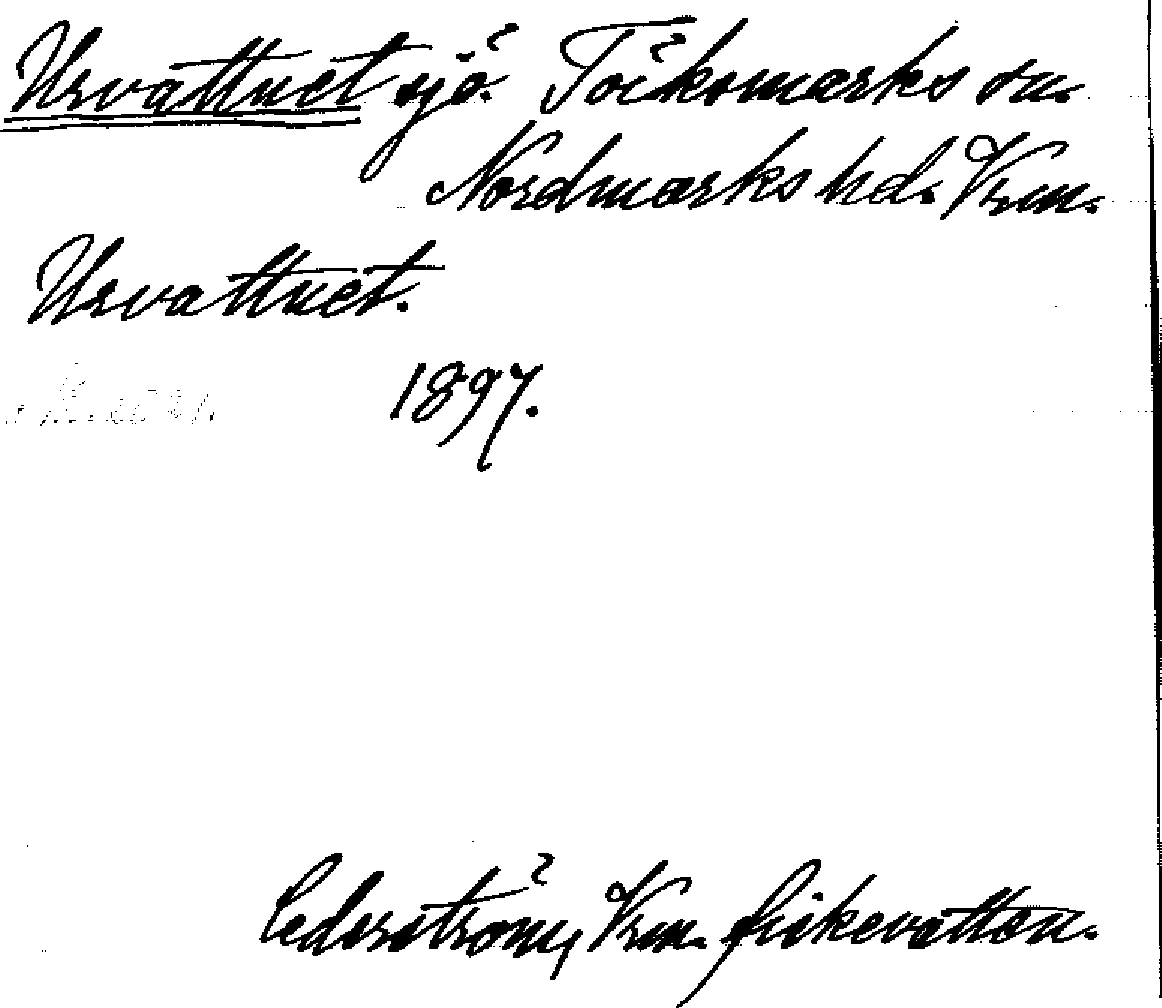 Ursvattnet sjö. Töcksmarks sn.
Nordmarks hd. Vrm.
Ursvattnet.
1897.
Cederström, Vrm. fiskevatten.